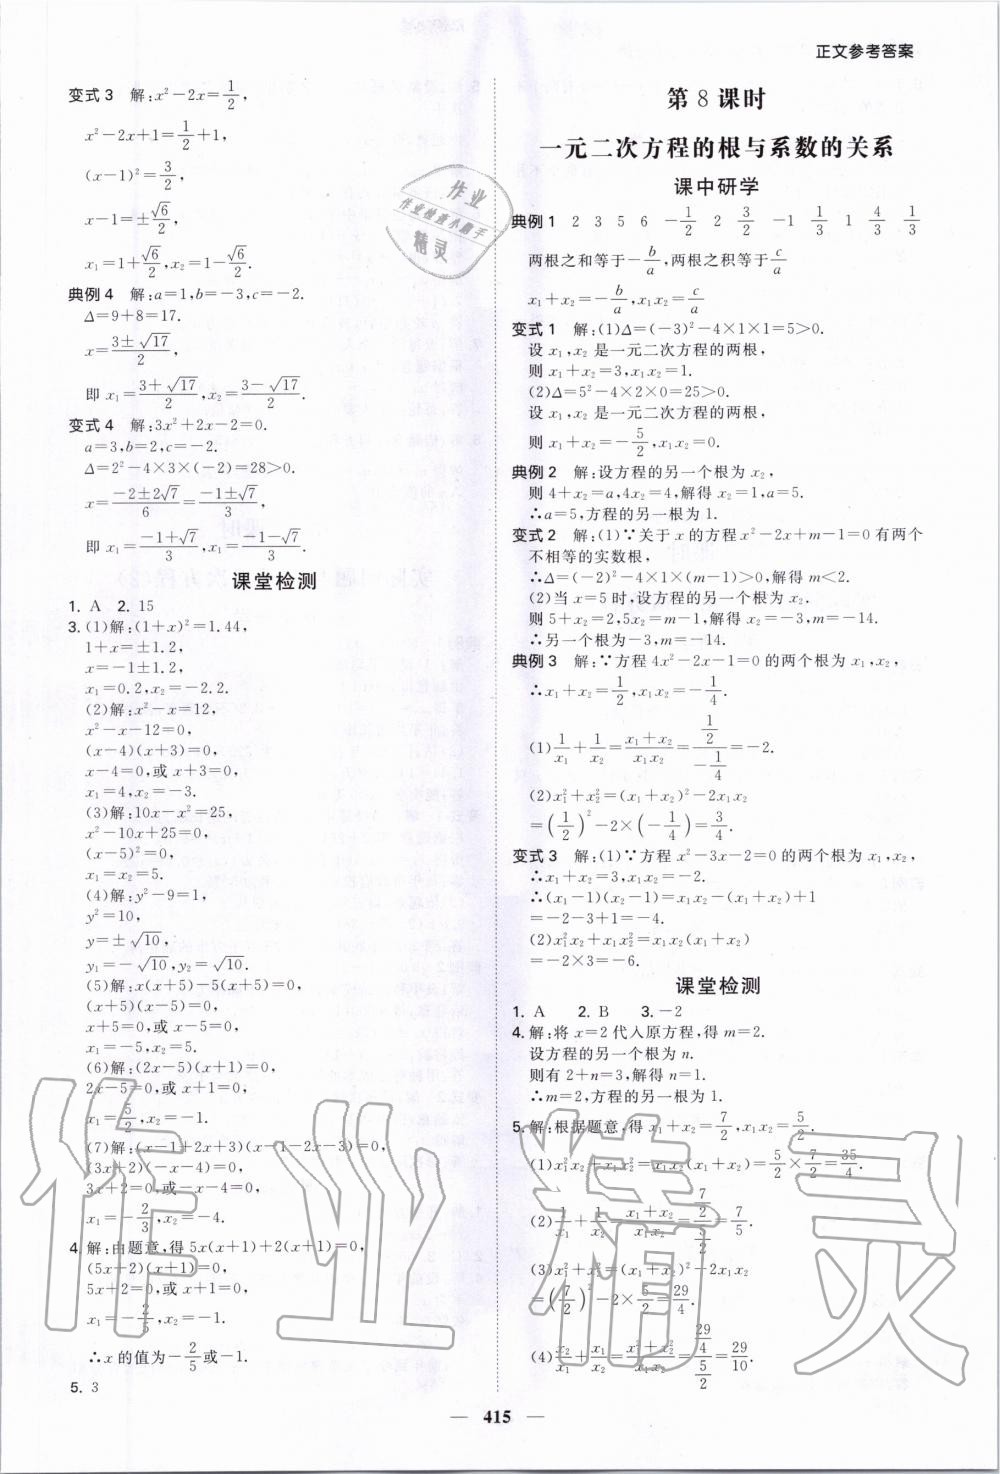 正文参考答案
变式3 解:x²-2x=1/2,
x²-2x+1=1/2+1,
(x-1)²=3/2,
x-1=±√6/2,
x₁=1+√6/2,x₂=1-√6/2.
典例4 解:a=1,b=-3,c=-2.
Δ=9+8=17.
x=(3±√17)/2,
即 x₁=(3+√17)/2,x₂=(3-√17)/2.
变式4 解:3x²+2x-2=0.
a=3,b=2,c=-2.
Δ=2²-4×3×(-2)=28>0.
x=(-2±2√7)/6=(-1±√7)/3,
即 x₁=(-1+√7)/3,x₂=(-1-√7)/3.
课堂检测
1. A 2. 15
3. (1)解:(1+x)²=1.44,
1+x=±1.2,
x=-1±1.2,
x₁=0.2,x₂=-2.2.
(2)解:x²-x=12,
x²-x-12=0,
(x-4)(x+3)=0,
x-4=0,或 x+3=0,
x₁=4,x₂=-3.
(3)解:10x-x²=25,
x²-10x+25=0,
(x-5)²=0,
x₁=x₂=5.
(4)解:y²-9=1,
y²=10,
y=±√10,
y₁=-√10,y₂=√10.
(5)解:x(x+5)-5(x+5)=0,
(x+5)(x-5)=0,
x+5=0,或 x-5=0,
x₁=-5,x₂=5.
(6)解:(2x-5)(x+1)=0,
2x-5=0,或 x+1=0,
x₁=5/2,x₂=-1.
(7)解:(x-1+2x+3)(x-1-2x-3)=0,
(3x+2)(-x-4)=0,
3x+2=0,或-x-4=0,
x₁=-2/3,x₂=-4.
4. 解:由题意,得 5x(x+1)+2(x+1)=0,
(5x+2)(x+1)=0,
5x+2=0,或 x+1=0,
x₁=-2/5,x₂=-1.
∴x 的值为-2/5或-1.
5. 3
第8课时
一元二次方程的根与系数的关系
课中研学
典例1 1 2 3 5 6 -1/2 2 3/2 -1 1/3 1 4/3 1/3
两根之和等于-b/a,两根之积等于c/a
x₁+x₂=-b/a,x₁x₂=c/a
变式1 解:(1)Δ=(-3)²-4×1×1=5>0.
设 x₁,x₂ 是一元二次方程的两根,
则 x₁+x₂=3,x₁x₂=1.
(2)Δ=5²-4×2×0=25>0.
设 x₁,x₂ 是一元二次方程的两根,
则 x₁+x₂=-5/2,x₁x₂=0.
典例2 解:设方程的另一个根为 x₂,
则 4+x₂=a,4x₂=4,解得 x₂=1,a=5.
∴a=5,方程的另一根为 1.
变式2 解:(1)∵关于 x 的方程 x²-2x+m-1=0 有两个
不相等的实数根,
∴Δ=(-2)²-4×1×(m-1)>0,解得 m<2.
(2)当 x=5 时,设方程的另一个根为 x₂.
则 5+x₂=2,5x₂=m-1,解得 x₂=-3,m=-14.
∴另一个根为-3,m=-14.
典例3 解:∵方程 4x²-2x-1=0 的两个根为 x₁,x₂,
∴x₁+x₂=1/2,x₁x₂=-1/4.
(1)1/x₁+1/x₂=(x₁+x₂)/(x₁x₂)=(1/2)/(-1/4)=-2.
(2)x₁²+x₂²=(x₁+x₂)²-2x₁x₂
=(1/2)²-2×(-1/4)=3/4.
变式3 解:(1)∵方程 x²-3x-2=0 的两个根为 x₁,x₂,
∴x₁+x₂=3,x₁x₂=-2.
∴(x₁-1)(x₂-1)=x₁x₂-(x₁+x₂)+1
=-2-3+1=-4.
(2)x₁²x₂+x₁x₂²=x₁x₂(x₁+x₂)
=-2×3=-6.
课堂检测
1. A 2. B 3. -2
4. 解:将 x=2 代入原方程,得 m=2.
设方程的另一个根为 n.
则有 2+n=3,解得 n=1.
∴m=2,方程的另一根为 1.
5. 解:根据题意,得 x₁+x₂=7/2,x₁x₂=5/2.
(1)x₁²x₂+x₁x₂²=x₁x₂(x₁+x₂)=5/2×7/2=35/4.
(2)1/x₁+1/x₂=(x₁+x₂)/(x₁x₂)=(7/2)/(5/2)=7/5.
(3)x₁²+x₂²=(x₁+x₂)²-2x₁x₂
=(7/2)²-2×5/2=29/4.
(4)x₁/x₂+x₂/x₁=(x₁²+x₂²)/(x₁x₂)=(29/4)/(5/2)=29/10.
— 415 —
作业
作业检查小助手
精灵
作业精灵